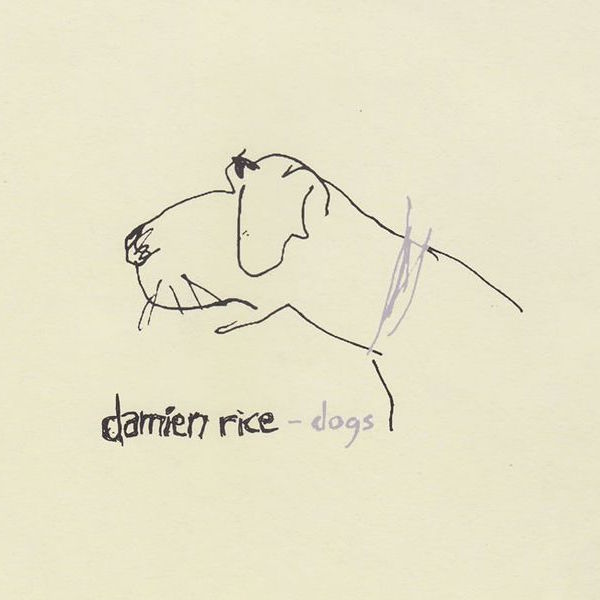 damien rice - dogs